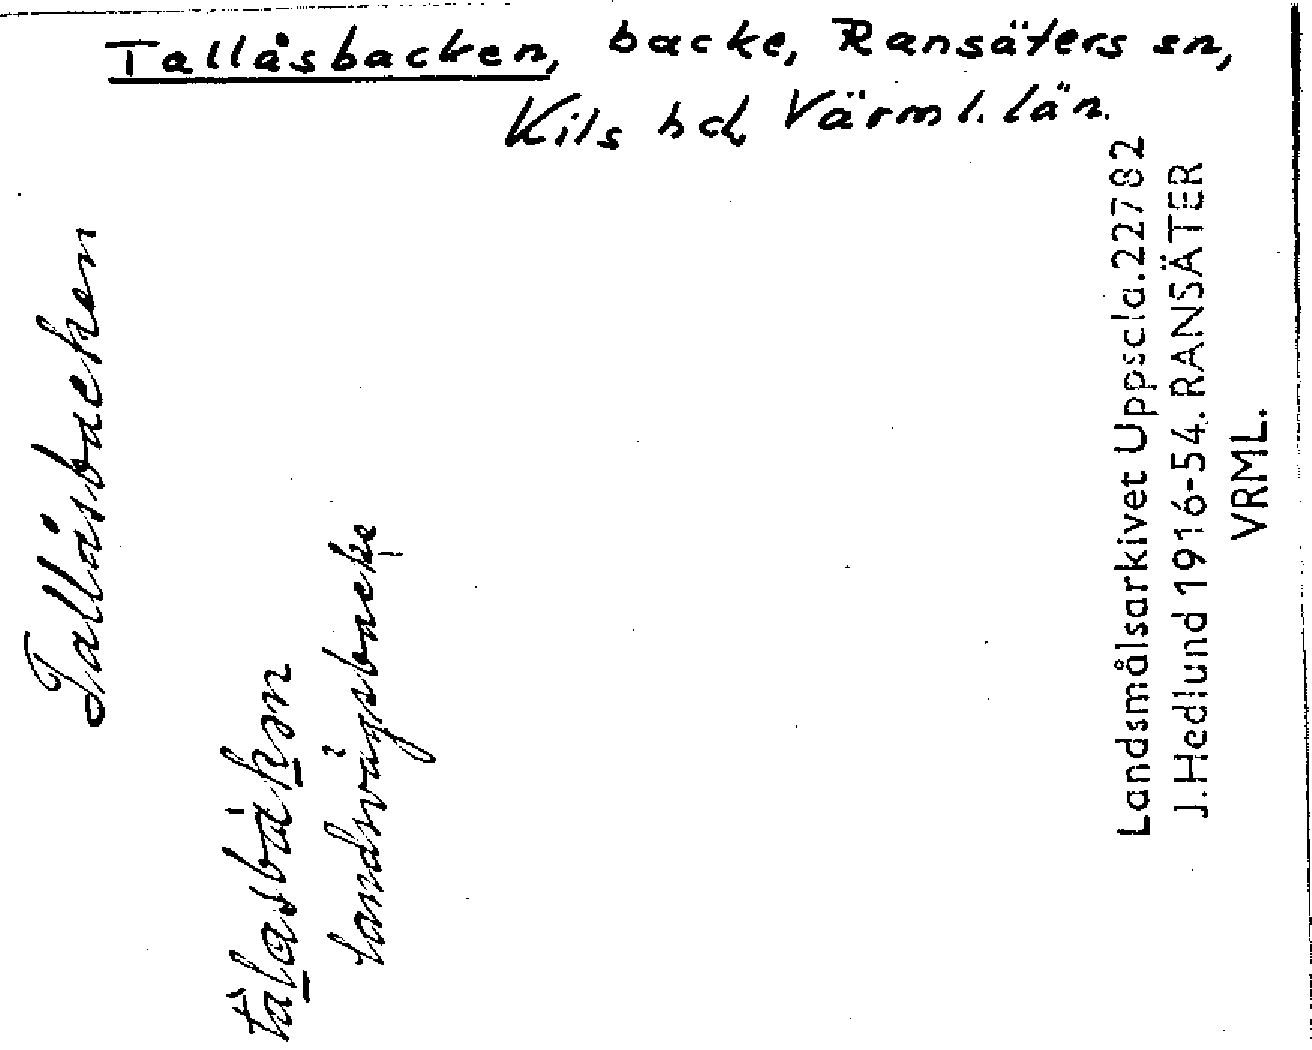 Tallåsbacken, backe, Ransäters sn,
Kils hd, Värml. län.
Tallåsbacken
landsvägsbacke
Landsmålsarkivet Uppsala. 22782
J. Hedlund 1916-54. RANSÄTER
VRML.